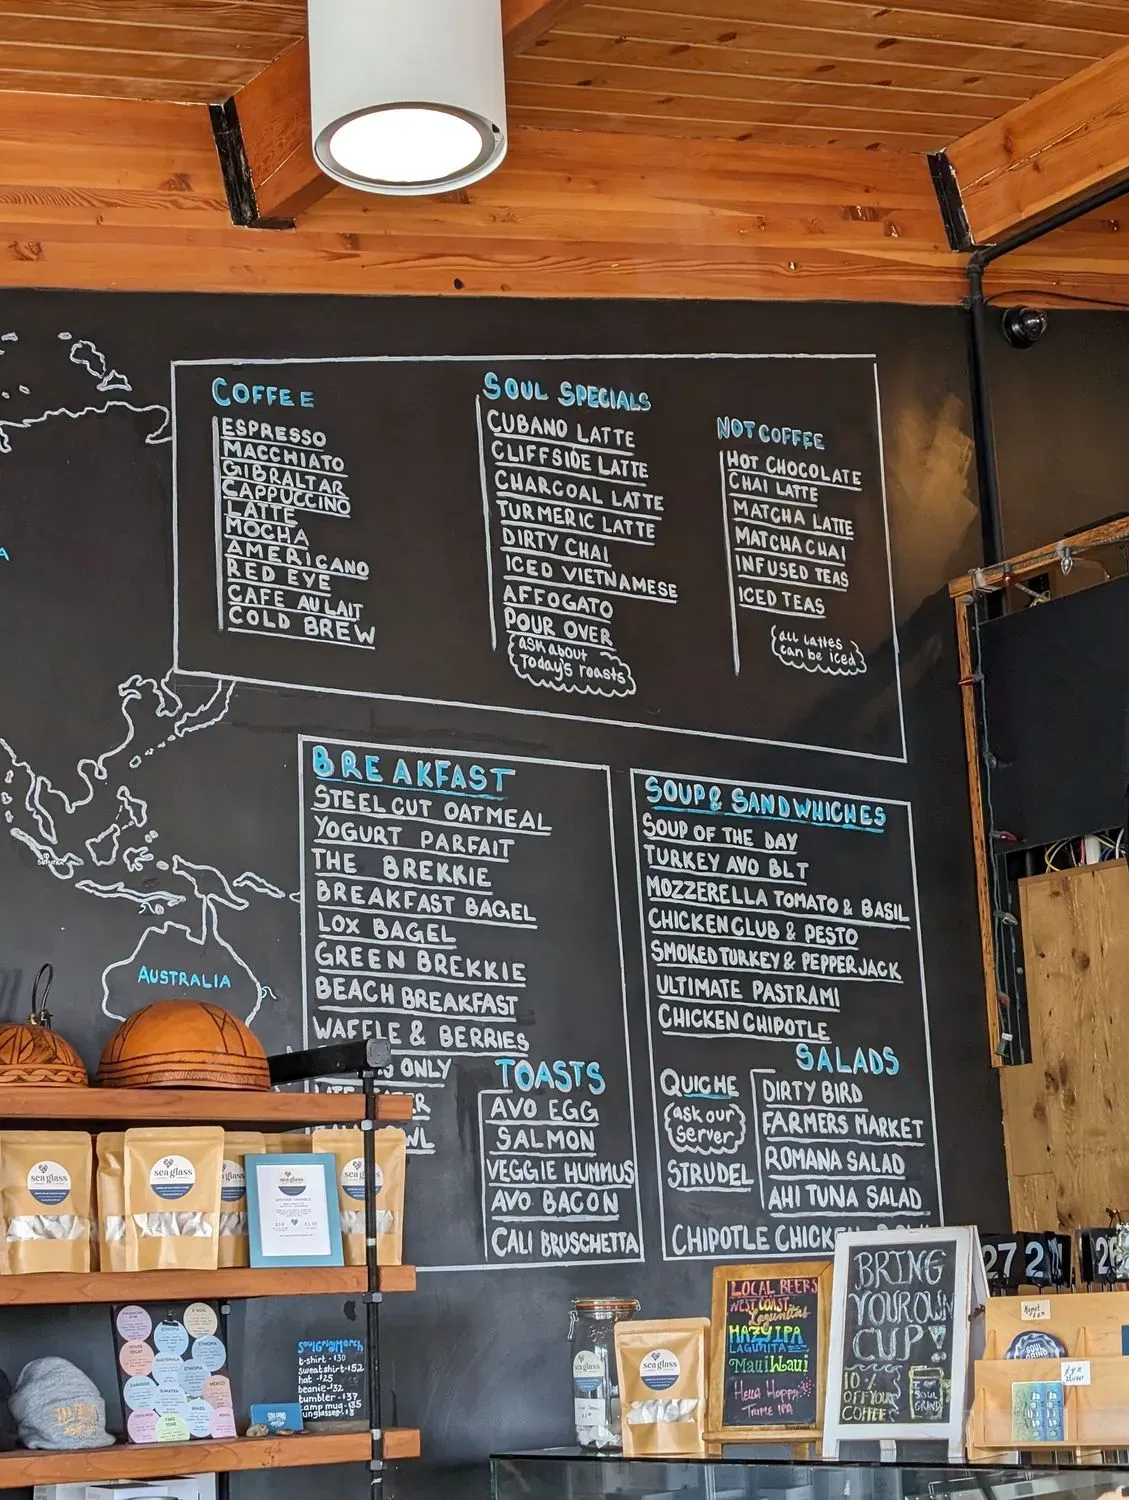 COFFEE
ESPRESSO
MACCHIATO
GIBRALTAR
CAPPUCCINO
LATTE
MOCHA
AMERICANO
RED EYE
CAFE AU LAIT
COLD BREW
SOUL SPECIALS
CUBANO LATTE
CLIFFSIDE LATTE
CHARCOAL LATTE
TURMERIC LATTE
DIRTY CHAI
ICED VIETNAMESE
AFFOGATO
POUR OVER
ask about
Today's roasts
NOT COFFEE
HOT CHOCOLATE
CHAI LATTE
MATCHA LATTE
MATCHA CHAI
INFUSED TEAS
ICED TEAS
all lattes
can be iced
BREAKFAST
STEEL CUT OATMEAL
YOGURT PARFAIT
THE BREKKIE
BREAKFAST BAGEL
LOX BAGEL
GREEN BREKKIE
BEACH BREAKFAST
WAFFLE & BERRIES
ONLY
TOASTS
AVO EGG
SALMON
VEGGIE HUMMUS
AVO BACON
CALI BRUSCHETTA
SOUP & SANDWHICHES
SOUP OF THE DAY
TURKEY AVO BLT
MOZZERELLA TOMATO & BASIL
CHICKEN CLUB & PESTO
SMOKED TURKEY & PEPPERJACK
ULTIMATE PASTRAMI
CHICKEN CHIPOTLE
QUICHE
ask our
server
STRUDEL
SALADS
DIRTY BIRD
FARMERS MARKET
ROMANA SALAD
AHI TUNA SALAD
CHIPOTLE CHICKEN
AUSTRALIA
sea glass
sea glass
sea glass
sea glass
Soul Grind Merch
t-shirt · $30
sweatshirt · $52
hat · $25
beanie · $32
tumbler · $37
camp mug · $35
sunglasses
ETHIOPIA
GUATEMALA
ETHIOPIA
SUMATRA
MEXICO
BRAZIL
TWO TONE
LOCAL BEERS
WEST COAST
Lagunitas
HAZY IPA
LAGUNITA
Maui Waui
Hella Hoppy
Triple IPA
sea glass
BRING
YOUR OWN
CUP!
10%
OFF YOUR
COFFEE
SOUL
GRIND
27
2
2
Magnet
SOUL
GRIND
Sticker